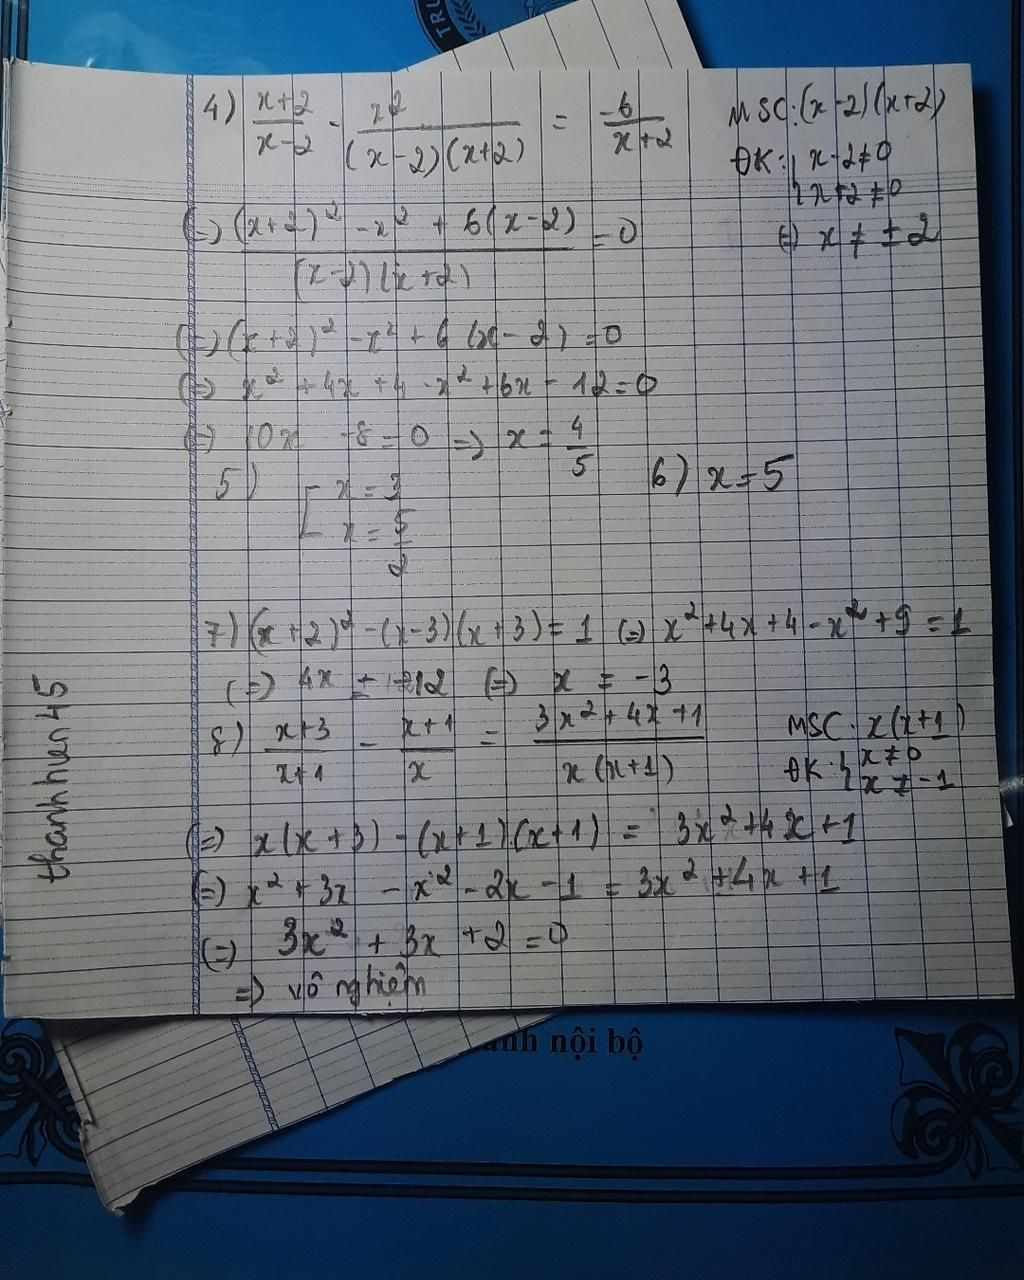 TRU
4) x+2/x-2 - x2/(x-2)(x+2) = -6/x+2 MSC: (x-2)(x+2)
ĐK: { x-2≠0
{ x+2≠0
(=) (x+2)² - x² + 6(x-2)/(x-2)(x+2) = 0 (=) x ≠ ±2
(=) (x+2)² - x² + 6(x-2) = 0
(=) x² + 4x + 4 - x² + 6x - 12 = 0
(=) 10x - 8 = 0 => x = 4/5
5) [ x = 3
x = 5/2
6) x = 5
7) (x+2)² - (x-3)(x+3) = 1 (=) x² + 4x + 4 - x² + 9 = 1
(=) 4x = -12 (=) x = -3
8) x+3/x+1 - x+1/x = 3x² + 4x + 1/x(x+1) MSC: x(x+1)
ĐK: { x ≠ 0
{ x ≠ -1
(=) x(x+3) - (x+1)(x+1) = 3x² + 4x + 1
(=) x² + 3x - x² - 2x - 1 = 3x² + 4x + 1
(=) 3x² + 3x + 2 = 0
=> vô nghiệm
thanh hien 45
nội bộ